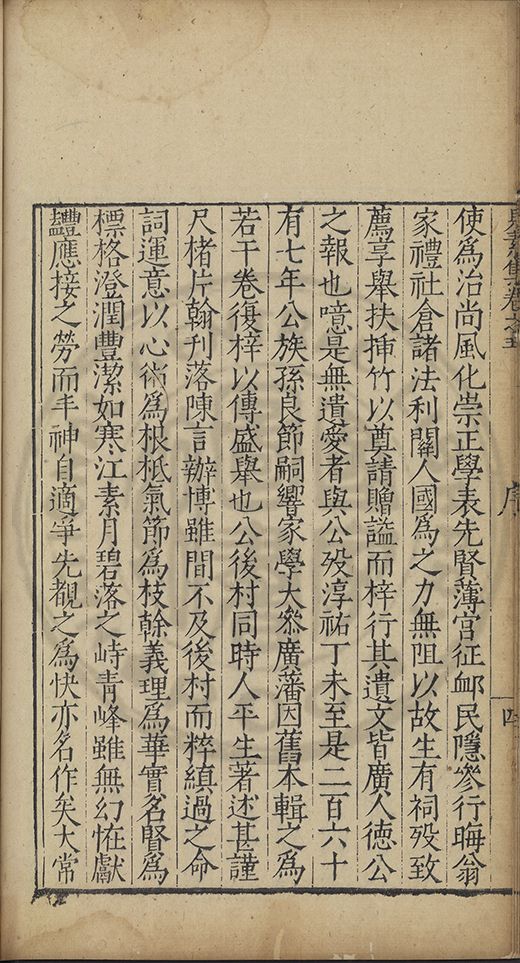 使為治尚風化崇正學表先賢薄宫征邮民隱叅行晦翁
家禮社倉諸法利關人國為之力無阻以故生有祠殁致
薦享舉扶揷竹以奠請贈謚而梓行其遺文皆廣人徳公
之報也噫是無遺愛者與公殁淳祐丁未至是二百六十
有七年公族孫良節嗣響家學大叅廣藩因舊本輯之為
若干卷復梓以傳盛舉也公後村同時人平生著述甚謹
尺楮片翰刋落陳言辦博雖間不及後村而粹縝過之命
詞運意以心術為根柢氣節為枝榦義理為華實名賢為
標格澄潤豐潔如寒江素月碧落之峙青峰雖無幻恠獻
應接之勞而丰神自適爭先覩之為快亦名作矣大常
卷之五
序
四